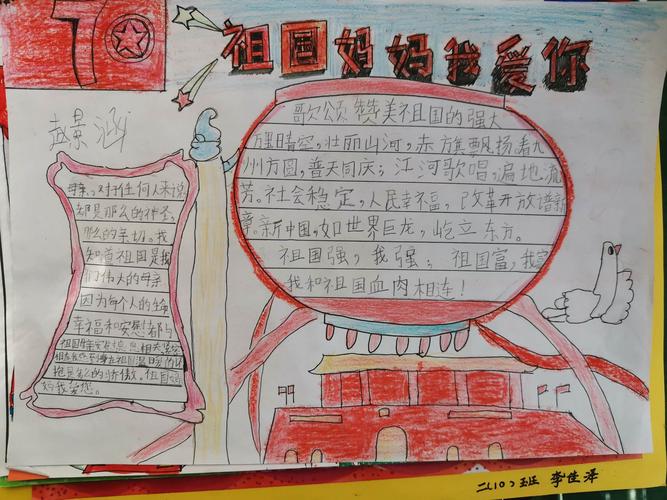 70
祖国妈妈我爱你
赵景涵
歌颂赞美祖国的强大
万里晴空,壮丽山河,赤旗飘扬着九
州方圆,普天同庆;江河歌唱,遍地流
芳。社会稳定,人民幸福,改革开放谱新
章。新中国,如世界巨龙,屹立东方。
祖国强,我强;祖国富,我富
我和祖国血肉相连!
母亲,对于任何人来说
都是那么的神圣,
那么的亲切。我
知道祖国是我
们伟大的母亲
因为每个人的生命
幸福和安想都与
祖国母亲
相
抱是多么的骄傲。祖国妈
妈我爱您。
二(10)班 李佳泽